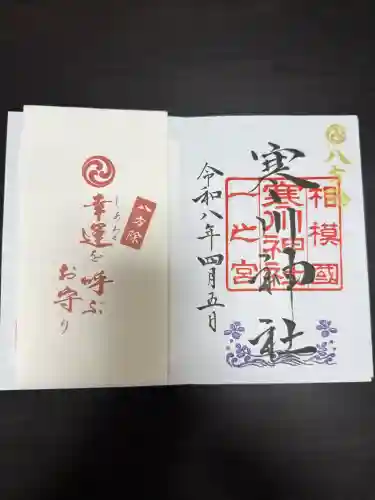 八方除
寒川神社
相模國
一之宮
寒川神社
令和八年四月五月
八方除
幸運を呼ぶ
しあわせ
お守り